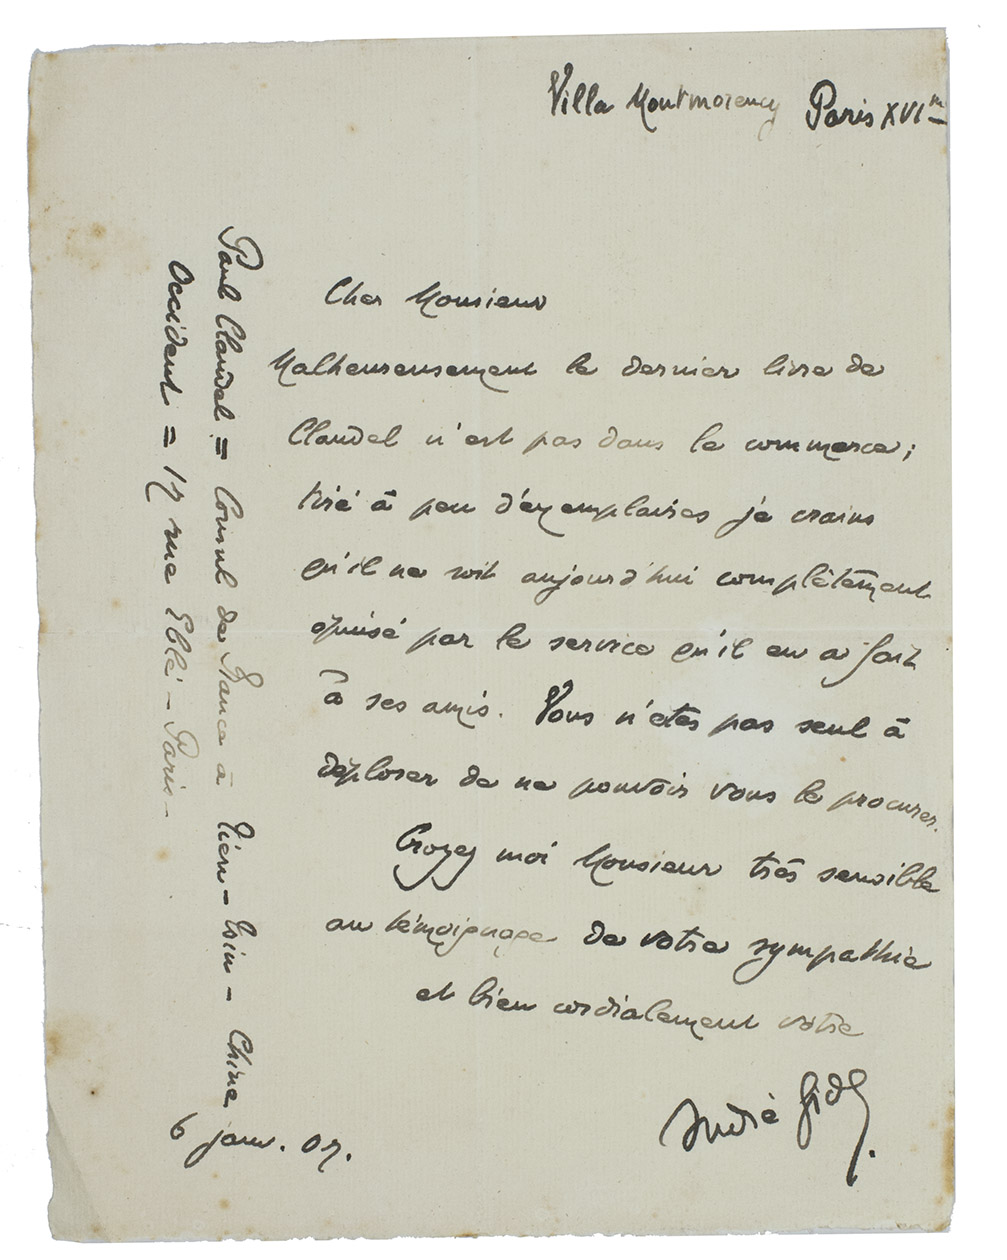 Villa Montmorency Paris XVIm
Cher Monsieur
Malheureusement le dernier livre de
Claudel n'est pas dans le commerce ;
tiré à peu d'exemplaires je crains
qu'il ne soit aujourd'hui complètement
épuisé par le service qu'il en a fait
à ses amis. Vous n'etes pas seul à
déplorer de ne pouvoir vous le procurer.
Croyez moi Monsieur très sensible
au témoignage de votre sympathie
et bien cordialement votre
André Gide.
Paul Claudel = Consul de France à Tien-Tsin - Chine
Occident = 17 rue Eblé - Paris -
6 janv. 07.